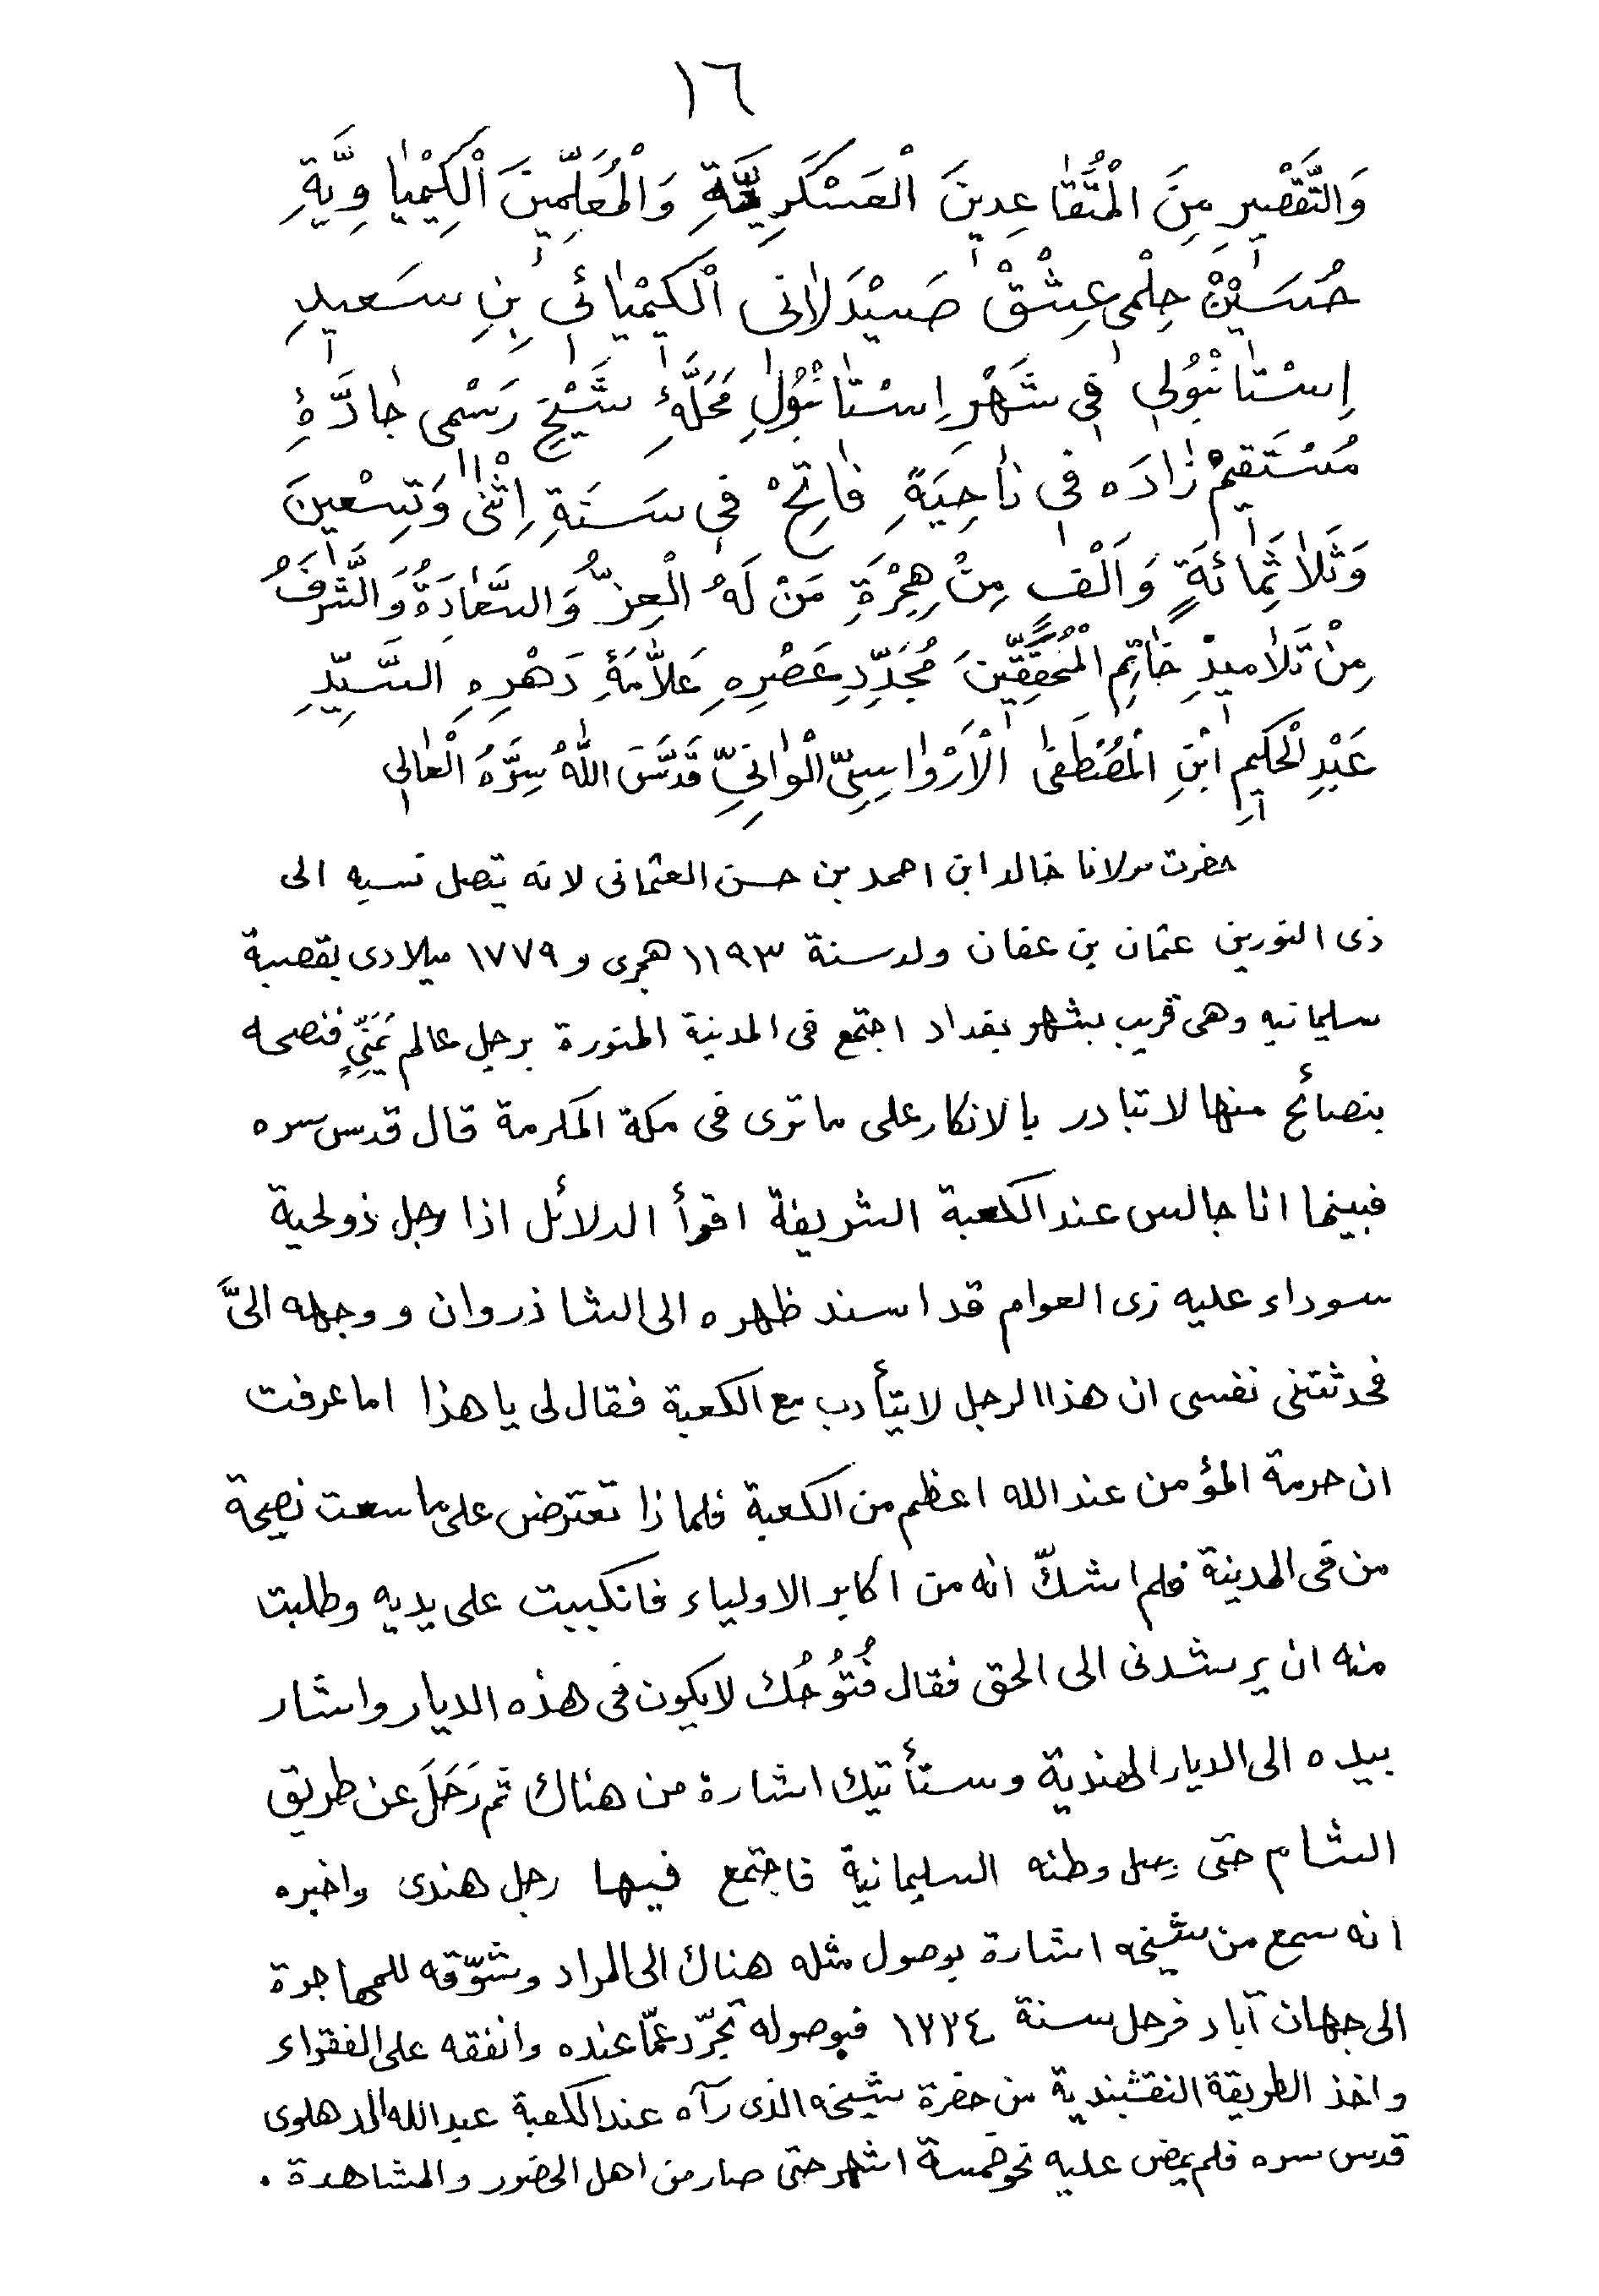 ١٦
وَالتَّقْصٖيرِ مِنَ الْمُتَقَاعِدٖينَ الْعَسْكَرِيَّةِ وَالْمُعَلِّمٖينَ الْكِيْمْيَاوِيَّةِ
حُسَيْنْ حِلْمٖى عِشْقْ صَيْدَلَانى الْكيْمْيَائٖي بِنِ سَعٖيدِ
اِسْتَانْبُولٖي فٖى شَهْرِ اِسْتَانْبُولِ مَحَلَّهٔ شَيْخْ رَسْمى جَادَّهٔ
مُسْتَقٖيمْ زَادَه فٖى نَاحِيَةِ فَاتِحْ فٖى سَنَةِ اِثْنٰى وَتِسْعٖينَ
وَثَلَاثِمِائَةٍ وَاَلْفٍ مِنْ هِجْرَةِ مَنْ لَهُ الْعِزُّ وَالسَّعَادَةُ وَالشَّرَفُ
مِنْ تَلَامٖيذِ خَاتِمِ الْمُحَقِّقٖينَ مُجَدِّدِ عَصْرِهِ عَلَّامَةِ دَهْرِهِ السَّيِّدِ
عَبْدِ الْحَكٖيمِ ابْنِ الْمُصْطَفٰى الْاَرْوَاسِىِّ الْوَانِىِّ قَدَّسَ اللّٰهُ سِرَّهُ الْعَالٖي
حضرت مولانا خالد ابن احمد بن حسن العثمانى لانه يتصل نسبه الى
ذى النورين عثمان بن عفان ولد سنة ١١٩٣ هجرى و ١٧٧٩ ميلادى بقصبة
سليمانيه وهى قريب بشهر بغداد اجتمع فى المدينة المنورة برجل عالم يَمَنِّىٍ فنصحه
بنصائح منها لا تبادر بالانكار على ما ترى فى مكة المكرمة قال قدس سره
فبينما انا جالس عند الكعبة الشريفة اقرأ الدلائل اذا رجل ذو لحية
سوداء عليه زى العوام قد اسند ظهره الى الشاذروان و وجهه الىَّ
فحدثتنى نفسى ان هذا الرجل لا يتأدب مع الكعبة فقال لى يا هذا اما عرفت
ان حرمة المؤمن عند الله اعظم من الكعبة فلماذا تعترض على ما سعت نصيحة
من فى المدينة فلم اشكّ انه من اكابر الاولياء فانكببت على يديه وطلبت
منه ان يرشدنى الى الحق فقال فُتُوُحُك لا يكون فى هذه الديار واشار
بيده الى الديار الهندية وستأتيك اشارة من هناك ثم رَحَلَ عن طريق
الشام حتى وصل وطنه السليمانية فاجتمع فيها رجل هندى واخبره
انه سمع من شيخه اشارة بوصول مثله هناك الى المراد وشوّقه للمهاجرة
الى جهان آباد فرحل سنة ١٢٢٤ فبوصوله تجرّد عمّا عنده وانفقه على الفقراء
واخذ الطريقة النقشبندية من حضرة شيخه الذى رآه عند الكعبة عبد الله الدهلوى
قدس سره فلم يمض عليه نحو خمسة اشهر حتى صار من اهل الحضور والمشاهدة .